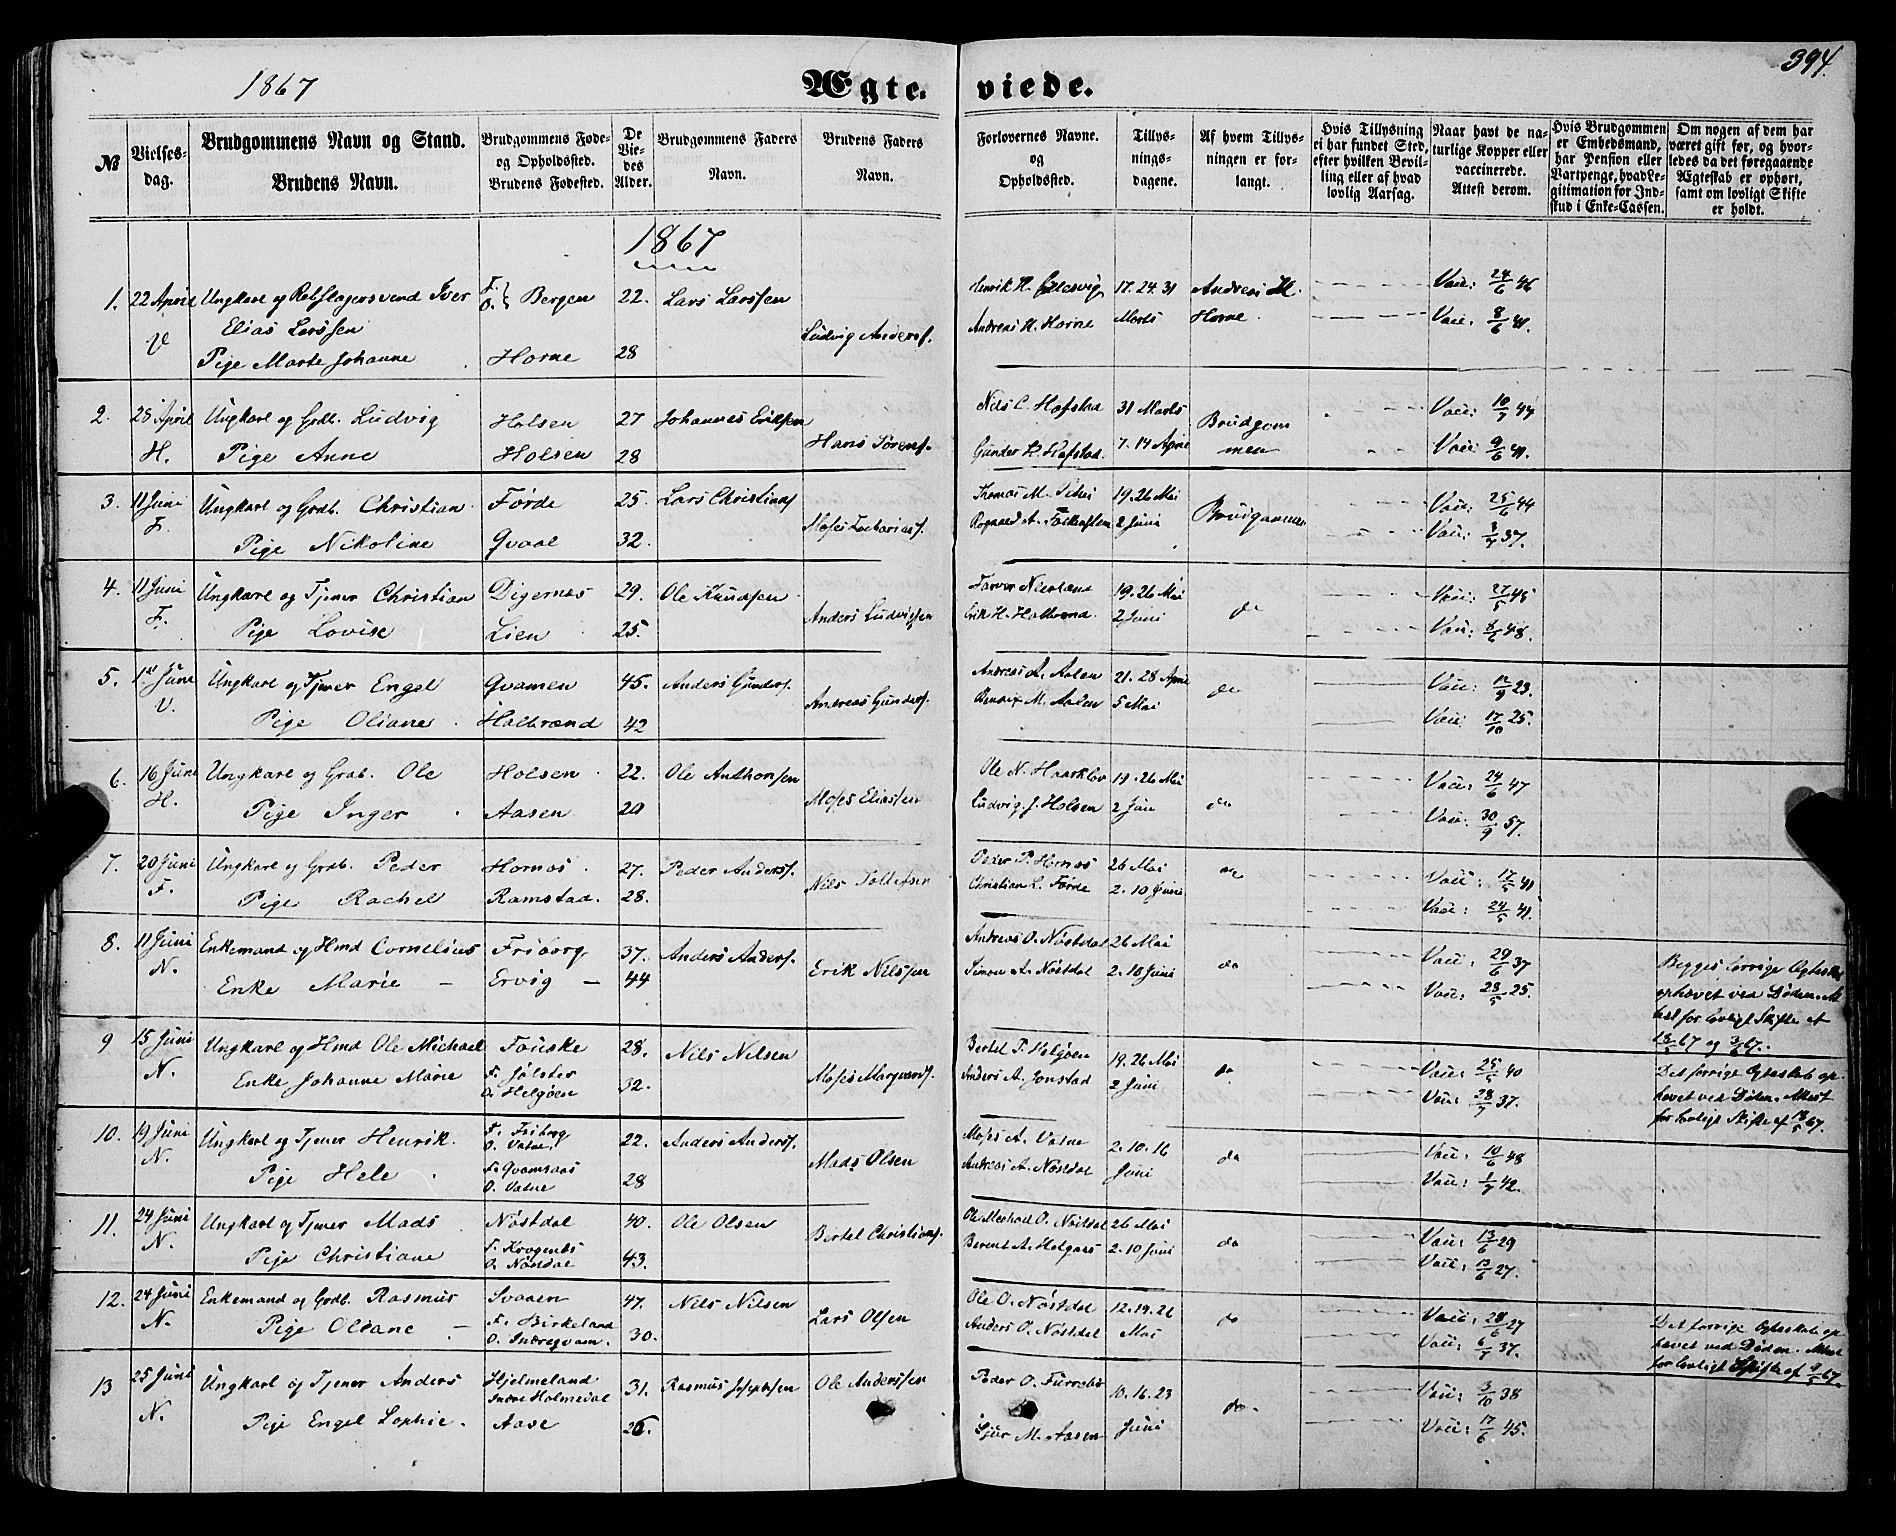 1867
Ægte-
viede.
394.
№
Vielses-
dag.
Brudgommens Navn og Stand.
Brudens Navn.
Brudgommens Føde-
og Opholdssted.
Brudens Fødested.
De
Vie-
des
Alder.
Brudgommens Faders
Navn.
Brudens Faders
Navn.
Forlovernes Navne.
og
Opholdssted.
Tillys-
nings-
dagene.
Af hvem Tillys-
ningen er for-
langt.
Hvis Tillysning
ei har fundet Sted,
efter hvilken Bevil-
ling eller af hvad
lovlig Aarsag.
Naar havt de na-
turlige Kopper eller
vaccinerede.
Attest derom.
Hvis Brudgommen
er Embedsmand,
har Pension eller
Vartpenge, hvad Le-
gitimation for Ind-
skud i Enke-Cassen.
Om nogen af dem har
været gift før, og hvor-
ledes da det foregaaende
Ægteskab er ophørt,
samt om lovligt Skifte
er holdt.
1867
1. 22 April Ungkarl og Rebslagersvend Iver F. O. } Bergen 22. Lars Larssen 17. 24. 31 Andreas H. Vacc: 24/6 46
V Elias Larssen Ludvig Anders. Andreas H. Horne Marts Horne Vacc: 8/6 41.
Pige Marte Johanne Horne 28
2. 28 April Ungkarl og Grdb. Ludvig Holsen 27 Johannes Eriksen Nils C. Hafstad 31 Marts Brudgom Vacc: 10/7 44
H. Pige Anne Holsen 28 Hans Sørens. Gunder H. Hafstad 7. 14 April men Vacc: 9/6 41.
3. 11 Juni Ungkarl og Grdb. Christian Førde 25. Lars Christians. Thomas M. 19. 26 Mai Brudgommen Vacc: 25/6 44
F. Pige Nikoline Qvaal 32. Moses Zacharias. 2 Juni Vacc: 3/7 37.
4. 11 Juni Ungkarl og Tjener Christian Digernes 29. Ole Knudsen 19. 26 Mai do Vacc: 27/5 45
F. Pige Lovise Lien 25. Anders Ludvigsen Erik H. Halbrend 2 Juni Vacc: 8/6 48.
5. 1st Juni Ungkarl og Tjener Engel Qvamen 45. Anders Gunders. Andreas A. Aalen 21. 28 April do Vacc: 12/9 23.
V. Pige Oliane Halbrænd 42 Andreas Gunders. M. Aalen 5 Mai Vacc: 17/10 25.
6. 16 Juni Ungkarl og Grdb. Ole Holsen 22. Ole Anthonsen Ole N. Haarklov 19. 26 Mai do Vacc: 24/6 47
H. Pige Inger Aasen 20 Moses Eliassen Ludvig J. Holsen 2 Juni Vacc: 30/9 57.
7. 20 Juni Ungkarl og Grdb. Peder Hornes 27. Peder Anders. Peder P. Hornes 26 Mai do Vacc: 17/5 41
F. Pige Rachel Ramstad. 28. Nils Tollefsen Christian L. Førde 2. 10 Juni Vacc: 24/5 41.
8. 11 Juni Enkemand og Hmd Cornelius Friborg 37. Anders Anders. Andreas O. Nøstdal 26 Mai do Vacc: 29/6 37 Begges forrige Egteskab
N. Enke Marie Ervig 44 Erik Nilssen Simon A. Nøstdal 2. 10 Juni Vacc: 28/5 25. ophævet ved Døden. At-
test for lovligt Skifte af
67 og 67.
9 15 Juni Ungkarl og Hmd Ole Michael Fouske 28. Nils Nilsen Bertel P. Helgøen 19. 26 Mai do Vacc: 25/5 40 Det forrige Egteskab op-
N. Enke Johanne Marie F. Jølster O. Helgøen 32. Moses Anders A. Jonstad 2 Juni Vacc: 28/7 37. hævet ved Døden. Attest
for lovligt Skifte af 67.
10. 19 Juni Ungkarl og Tjener Henrik F. Friborg O. Vatne 22. Anders Anders. Moses A. Vatne 2. 10. 16 do Vacc: 10/6 48
N. Pige Hele F. Qvamsaas O. Vatne 28 Mads Olsen Andreas A. Nøstdal Juni Vacc: 1/7 42.
11. 24 Juni Ungkarl og Tjener Mads Nøstdal 40. Ole Olsen Ole Michael O. Nøstdal 26 Mai do Vacc: 13/6 29
N. Pige Christiane F. O. Nøstdal 43. Bertel Christians. Berent A. Helgaas 2. 10 Juni Vacc: 13/6 27.
12. 24 Juni Enkemand og Grdb. Rasmus Svaaen 47. Nils Nilsen Ole O. Nøstdal 12. 19. 26 do Vacc: 28/6 27 Det forrige Egteskab op-
N. Pige Oliane F. Birkeland O. Indreqvam. 30. Lars Olsen Anders O. Nøstdal Mai Vacc: 6/7 37. hævet ved Døden. Attest
for lovligt Skifte af 67.
13 25 Juni Ungkarl og Tjener Anders Hjelmeland Indre Holmedal 31. Rasmus Josephsen Peder O. Furrebø 10. 16. 23 do. Vacc: 3/10 38
N. Pige Engel Sophie. Aase 26. Ole Anderssen Sjur M. Aasen Juni Vacc: 17/6 45.